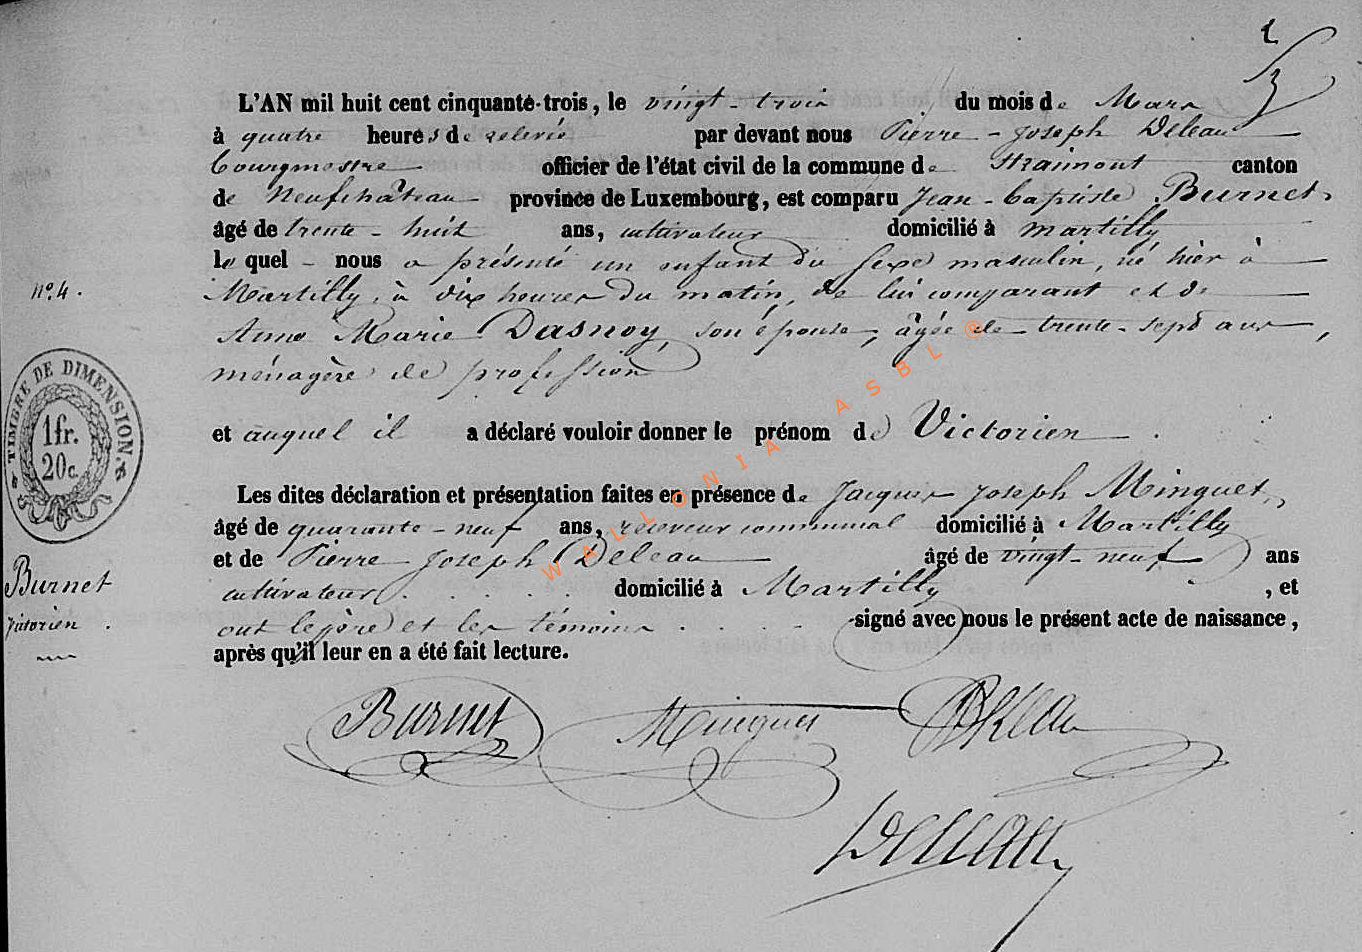 L'AN mil huit cent cinquante-trois, le vingt-trois du mois de Mars
à quatre heures de relevée par devant nous Pierre-Joseph Deleau
bourgmestre officier de l'état civil de la commune de Straimont canton
de Neufchâteau province de Luxembourg, est comparu Jean-Baptiste Burnet,
âgé de trente-huit ans, cultivateur domicilié à Martilly
le quel - nous a présenté un enfant du sexe masculin, né hier à
n°. 4.
Martilly, à dix heures du matin, de lui comparant et de
Anne Marie Dasnoy, son épouse, âgée de trente-sept ans,
ménagère de profession
TIMBRE DE DIMENSION.
1fr.
20c.
et auquel il a déclaré vouloir donner le prénom de Victorien.
Les dites déclaration et présentation faites en présence de Jacques Joseph Minguet,
âgé de quarante-neuf ans, receveur communal domicilié à Martilly
et de Pierre Joseph Deleau âgé de vingt-neuf ans
Burnet
cultivateur domicilié à Martilly, et
Victorien.
ont le père et les témoins signé avec nous le présent acte de naissance,
après qu'il leur en a été fait lecture.
Burnet Minguet Deleau
Deleau
WALLONIA ASBL ©